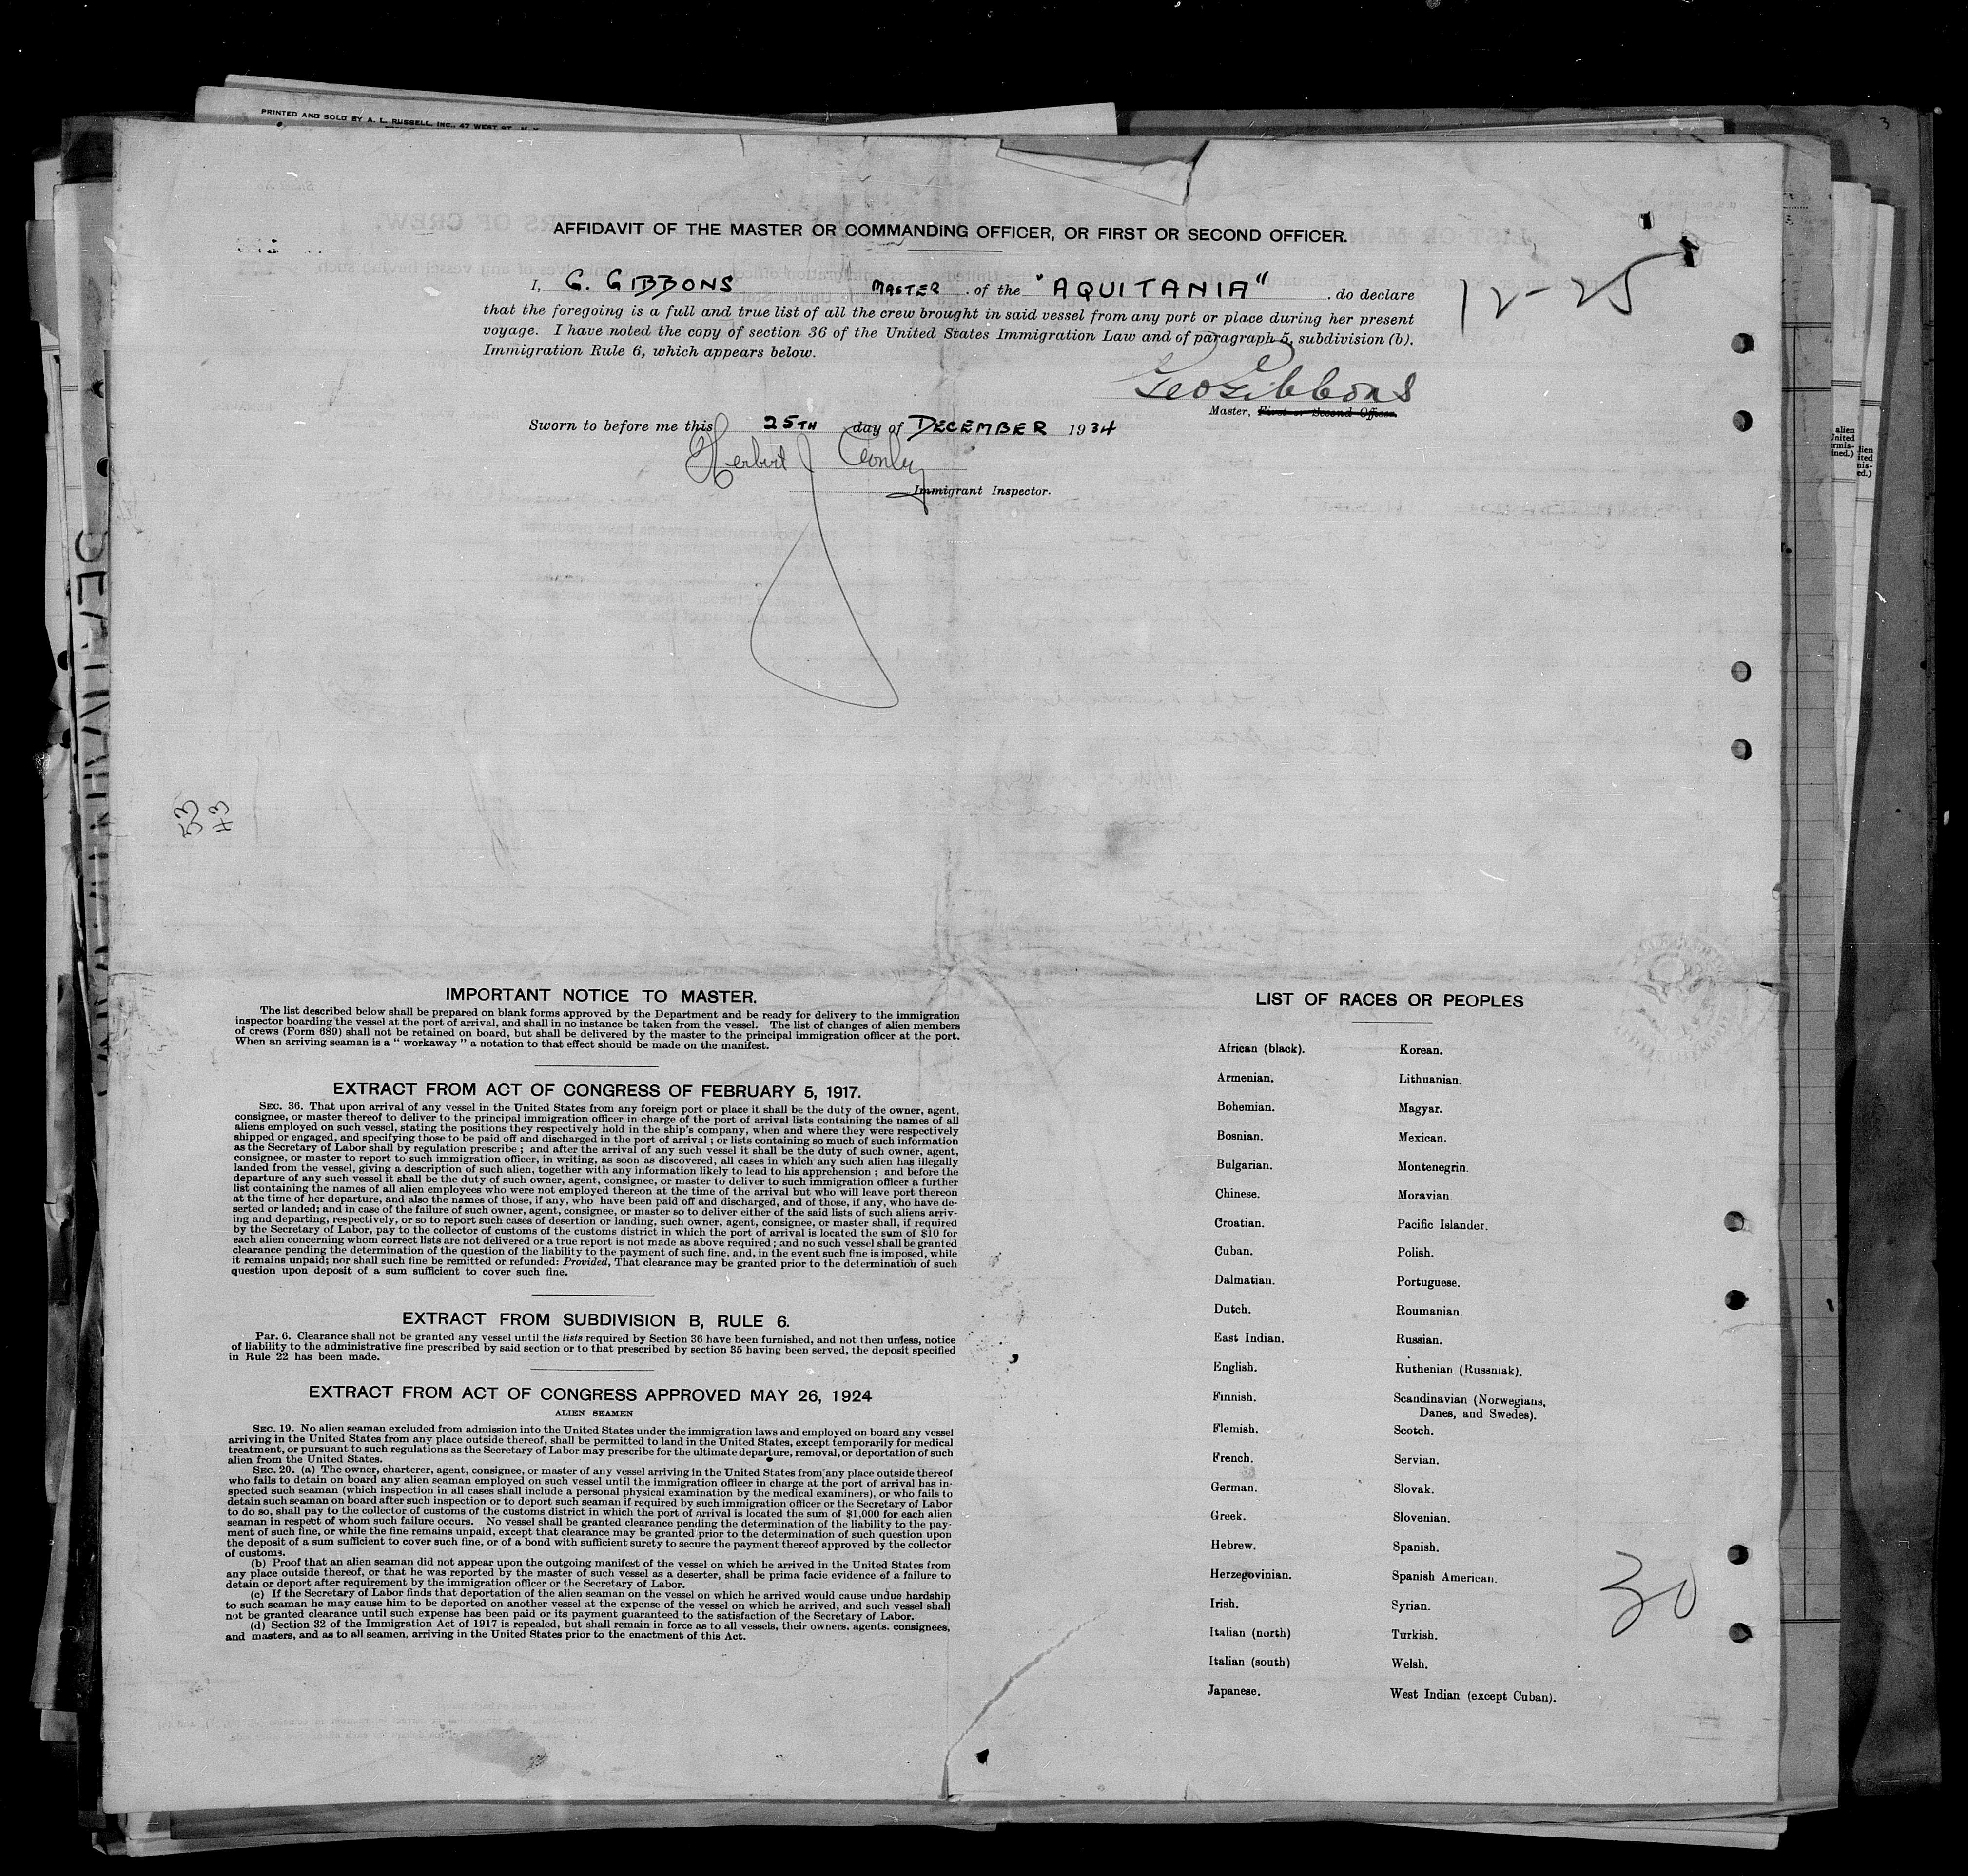 PRINTED AND SOLD BY A. L. RUSSELL, INC., 47 WEST ST.
3
AFFIDAVIT OF THE MASTER OR COMMANDING OFFICER, OR FIRST OR SECOND OFFICER.
I, G. GIBBONS MASTER of the "AQUITANIA" do declare
that the foregoing is a full and true list of all the crew brought in said vessel from any port or place during her present
voyage. I have noted the copy of section 36 of the United States Immigration Law and of paragraph 5, subdivision (b).
Immigration Rule 6, which appears below.
12-25
Geo Gibbons
Master, First or Second Officer.
Sworn to before me this 25TH day of DECEMBER 1934
Herbert J Conley
Immigrant Inspector.
53
73
IMPORTANT NOTICE TO MASTER.
The list described below shall be prepared on blank forms approved by the Department and be ready for delivery to the immigration
inspector boarding the vessel at the port of arrival, and shall in no instance be taken from the vessel. The list of changes of alien members
of crews (Form 689) shall not be retained on board, but shall be delivered by the master to the principal immigration officer at the port.
When an arriving seaman is a " workaway " a notation to that effect should be made on the manifest.
EXTRACT FROM ACT OF CONGRESS OF FEBRUARY 5, 1917.
SEC. 36. That upon arrival of any vessel in the United States from any foreign port or place it shall be the duty of the owner, agent,
consignee, or master thereof to deliver to the principal immigration officer in charge of the port of arrival lists containing the names of all
aliens employed on such vessel, stating the positions they respectively hold in the ship's company, when and where they were respectively
shipped or engaged, and specifying those to be paid off and discharged in the port of arrival ; or lists containing so much of such information
as the Secretary of Labor shall by regulation prescribe ; and after the arrival of any such vessel it shall be the duty of such owner, agent,
consignee, or master to report to such immigration officer, in writing, as soon as discovered, all cases in which any such alien has illegally
landed from the vessel, giving a description of such alien, together with any information likely to lead to his apprehension ; and before the
departure of any such vessel it shall be the duty of such owner, agent, consignee, or master to deliver to such immigration officer a further
list containing the names of all alien employees who were not employed thereon at the time of the arrival but who will leave port thereon
at the time of her departure, and also the names of those, if any, who have been paid off and discharged, and of those, if any, who have de-
serted or landed; and in case of the failure of such owner, agent, consignee, or master so to deliver either of the said lists of such aliens arriv-
ing and departing, respectively, or so to report such cases of desertion or landing, such owner, agent, consignee, or master shall, if required
by the Secretary of Labor, pay to the collector of customs of the customs district in which the port of arrival is located the sum of $10 for
each alien concerning whom correct lists are not delivered or a true report is not made as above required ; and no such vessel shall be granted
clearance pending the determination of the question of the liability to the payment of such fine, and, in the event such fine is imposed, while
it remains unpaid; nor shall such fine be remitted or refunded: Provided, That clearance may be granted prior to the determination of such
question upon deposit of a sum sufficient to cover such fine.
EXTRACT FROM SUBDIVISION B, RULE 6.
Par. 6. Clearance shall not be granted any vessel until the lists required by Section 36 have been furnished, and not then unless, notice
of liability to the administrative fine prescribed by said section or to that prescribed by section 35 having been served, the deposit specified
in Rule 22 has been made.
EXTRACT FROM ACT OF CONGRESS APPROVED MAY 26, 1924
ALIEN SEAMEN
SEC. 19. No alien seaman excluded from admission into the United States under the immigration laws and employed on board any vessel
arriving in the United States from any place outside thereof, shall be permitted to land in the United States, except temporarily for medical
treatment, or pursuant to such regulations as the Secretary of Labor may prescribe for the ultimate departure, removal, or deportation of such
alien from the United States.
SEC. 20. (a) The owner, charterer, agent, consignee, or master of any vessel arriving in the United States from any place outside thereof
who fails to detain on board any alien seaman employed on such vessel until the immigration officer in charge at the port of arrival has in-
spected such seaman (which inspection in all cases shall include a personal physical examination by the medical examiners), or who fails to
detain such seaman on board after such inspection or to deport such seaman if required by such immigration officer or the Secretary of Labor
to do so, shall pay to the collector of customs of the customs district in which the port of arrival is located the sum of $1,000 for each alien
seaman in respect of whom such failure occurs. No vessel shall be granted clearance pending the determination of the liability to the pay-
ment of such fine, or while the fine remains unpaid, except that clearance may be granted prior to the determination of such question upon
the deposit of a sum sufficient to cover such fine, or of a bond with sufficient surety to secure the payment thereof approved by the collector
of customs.
(b) Proof that an alien seaman did not appear upon the outgoing manifest of the vessel on which he arrived in the United States from
any place outside thereof, or that he was reported by the master of such vessel as a deserter, shall be prima facie evidence of a failure to
detain or deport after requirement by the immigration officer or the Secretary of Labor.
(c) If the Secretary of Labor finds that deportation of the alien seaman on the vessel on which he arrived would cause undue hardship
to such seaman he may cause him to be deported on another vessel at the expense of the vessel on which he arrived, and such vessel shall
not be granted clearance until such expense has been paid or its payment guaranteed to the satisfaction of the Secretary of Labor.
(d) Section 32 of the Immigration Act of 1917 is repealed, but shall remain in force as to all vessels, their owners, agents, consignees,
and masters, and as to all seamen, arriving in the United States prior to the enactment of this Act.
LIST OF RACES OR PEOPLES
African (black). Korean.
Armenian. Lithuanian.
Bohemian. Magyar.
Bosnian. Mexican.
Bulgarian. Montenegrin.
Chinese. Moravian
Croatian. Pacific Islander.
Cuban. Polish.
Dalmatian. Portuguese.
Dutch. Roumanian.
East Indian. Russian.
English. Ruthenian (Russniak).
Finnish. Scandinavian (Norwegians,
Danes, and Swedes).
Flemish. Scotch.
French. Servian.
German. Slovak.
Greek. Slovenian.
Hebrew. Spanish.
Herzegovinian. Spanish American.
Irish. Syrian.
Italian (north) Turkish.
Italian (south) Welsh.
Japanese. West Indian (except Cuban).
30